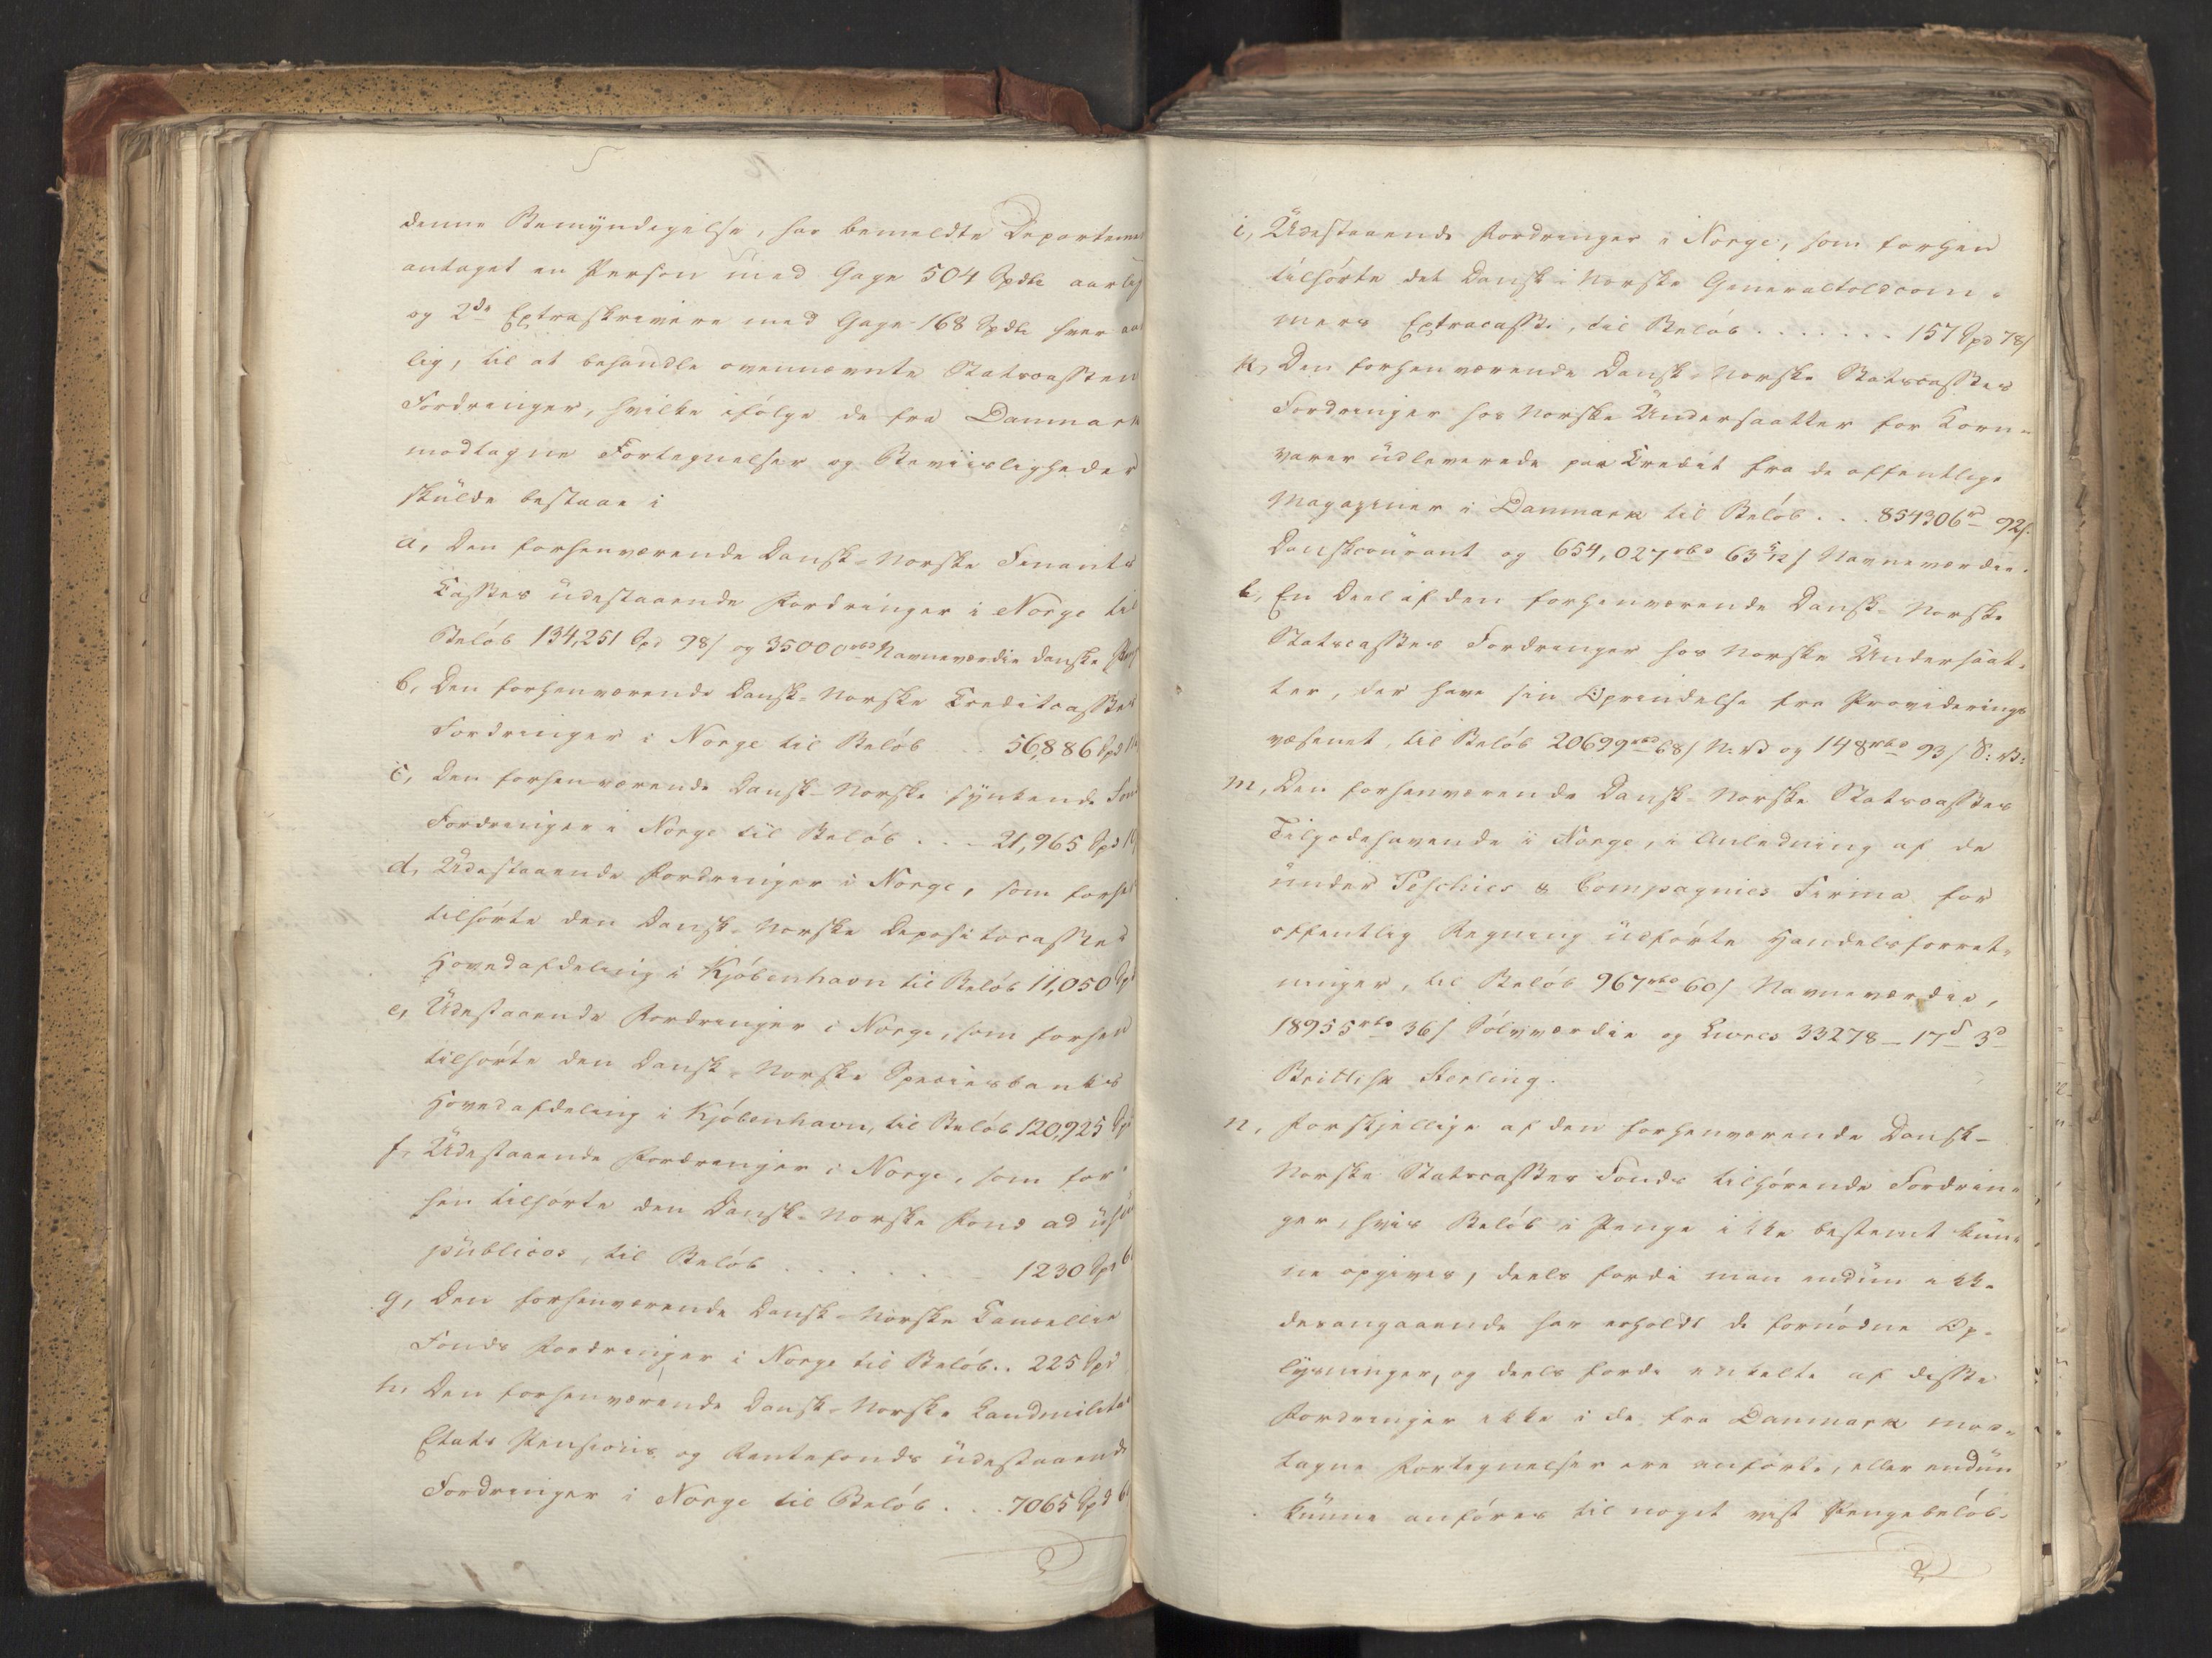 denne Bemyndigelse, har bemeldte Departement
antaget en Person med Gage 504 Spdlr aarlig
og 2de Extraskrivere med Gage 168 Spdlr hver aar
lig, til at behandle ovennævnte Statscassten
Fordringer, hvilke ifølge de fra Danmark
modtagne Fortegnelser og Beviisligheder
skulde bestaae i
a, Den forhenværende Dansk-Norske Finants
Casses udestaaende Fordringer i Norge til
Beløb 134,251 Spd 98/ og 35000 rbd Navneværdie danske
b, Den forhenværende Dansk-Norske Creditcasses
Fordringer i Norge til Beløb .. 56,886 Spd
c, Den forhenværende Dansk-Norske synkende Fonds
Fordringer i Norge til Beløb ... 21,965 Spd
d, Udestaaende Fordringer i Norge, som forhen
tilhørte den Dansk-Norske Depositocasses
Hovedafdeling i Kjøbenhavn til Beløb 11,050 Spd
e, Udestaaende Fordringer i Norge, som forhen
tilhørte den Dansk-Norske Speciesbanks
Hovedafdeling i Kjøbenhavn, til Beløb 120,925 Spd
f, Udestaaende Fordringer i Norge, som for
hen tilhørte den Dansk-Norske Fond ad usus
publicos, til Beløb ...... 1230 Spd
g, Den forhenværende Dansk-Norske Cancellie
Fonds Fordringer i Norge til Beløb .. 225 Spd
h, Den forhenværende Dansk-Norske Landmilitai
Etats Pensions og Rentefonds udestaaende
Fordringer i Norge til Beløb ... 7065 Spd
i, Udestaaende Fordringer i Norge, som forhen
tilhørte det Dansk-Norske Generaltoldcom-
mers Extracasse, til Beløb ....... 157 Spd 78/
k, Den forhenværende Dansk-Norske Statscasses
Fordringer hos Norske Undersaatter for Korn-
varer udleverede paa Credit fra de offentlige
Magaziner i Danmark til Beløb ... 854306 rd 92/.
Danskcourant og 654,027 rbd 63 5/12/ Navneværdie.
l, En Deel af den forhenværende Dansk-Norske
Statscasses Fordringer hos Norske Undersaat-
ter, der have sin Oprindelse fra Providerings
væsenet, til Beløb 20699 rbd 68/ N: V og 148 rbd 93/ S: V:
m, Den forhenværende Dansk-Norske Statscasses
Tilgodehavende i Norge, i Anledning af de
under Peschies & Compagnies Firma for
offentlig Regning udførte Handelsforret-
ninger, til Beløb 967 rbd 60/ Navneværdie,
18955 rbd 36/ Sølvværdie og Livres 33278 – 17 s 3 d
Brittisk Sterling.
n, Forskjellige af den forhenværende Dansk-
Norske Statscasses Fonds tilhørende Fordrin-
ger, hvis Beløb i Penge ikke bestemt kun-
ne opgives, deels fordi man endnu ikke
desangaaende har erholdt de fornødne Op-
lysninger, og deels fordi enkelte af disse
Fordringer ikke i de fra Danmark mod-
tagne Fortegnelser ere anførte, eller endnu
kunne anføres til noget vist Pengebeløb.